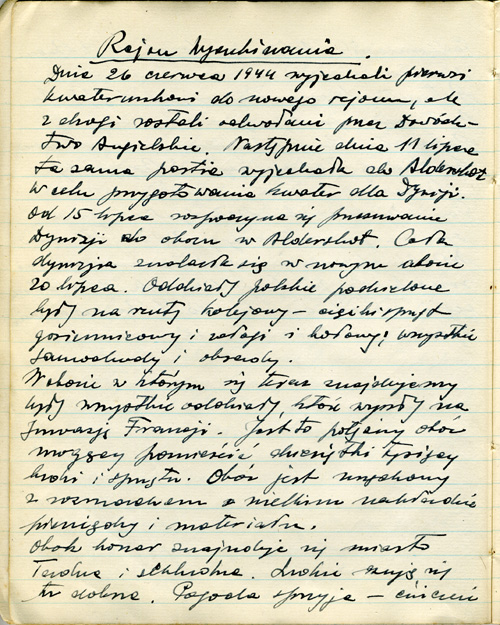 Rejon Wyczekiwania.
Dnia 26 czerwca 1944 wyjechali pierwsi
kwaterunkowi do nowego rejonu, ale
z drogi zostali odwołani przez Dowódz-
two Angielskie. Następnie dnia 11 lipca
ta sama partia wyjechała do Aldershot
w celu przygotowania kwater dla Dywizji.
Od 15 lipca rozpoczyna się przesuwanie
Dywizji do obozu w Aldershot. Cała
dywizja znalazła się w nowym obozie
20 lipca. Oddziały polskie podzielone
były na rzuty kolejowy – ciężki sprzęt
gąsienicowy i załogi i kołowy; wszystkie
samochody i obsady.
W obozie w którym się teraz znajdujemy
były wszystkie oddziały, które wyszły na
Inwazję Francji. Jest to potężny obóz
mogący pomieścić dziesiątki tysięcy
ludzi i sprzętu. Obóz jest
z rozmachem z wielkim nakładem
pieniędzy i materiału.
Obok koszar znajduje się miasto
ładne i schludne. Ludzie czują się
tu dobrze. Pogoda sprzyja –